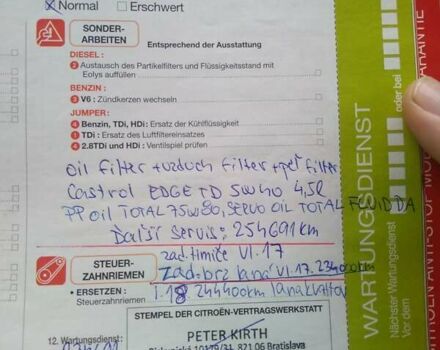 Normal Erschwert
SONDER-
ARBEITEN
Entsprechend der Ausstattung
DIESEL :
2 Austausch des Partikelfilters und Flüssigkeitsstand mit
Eolys auffüllen
BENZIN :
3 V6 : Zündkerzen wechseln
JUMPER :
4 Benzin, TDi, HDi : Ersatz der Kühlflüssigkeit
1 TDi : Ersatz des Luftfiltereinsatzes
4 2.8TDi und HDi : Ventilspiel prüfen
oil filter + vzduch filter + pel filter
Castrol EDGE TD 5W40 4,5L
PP oil TOTAL 75W80, SERVO OIL TOTAL FLUID DA
Ďalší servis: 254691km
STEUER-
ZAHNRIEMEN
zad. tlmiče VI.17
zad. brz. lana VI.17.
ERSETZEN :
Steuerzahnriemen
244400km
12. Wartungsdienst:
STEMPEL DER CITROËN-VERTRAGSWERKSTATT
PETER KIRTH
821 06 Bratislava
WARTUNGSDIENST
Nächster Wartungsdienst
Vor dem
oder bei